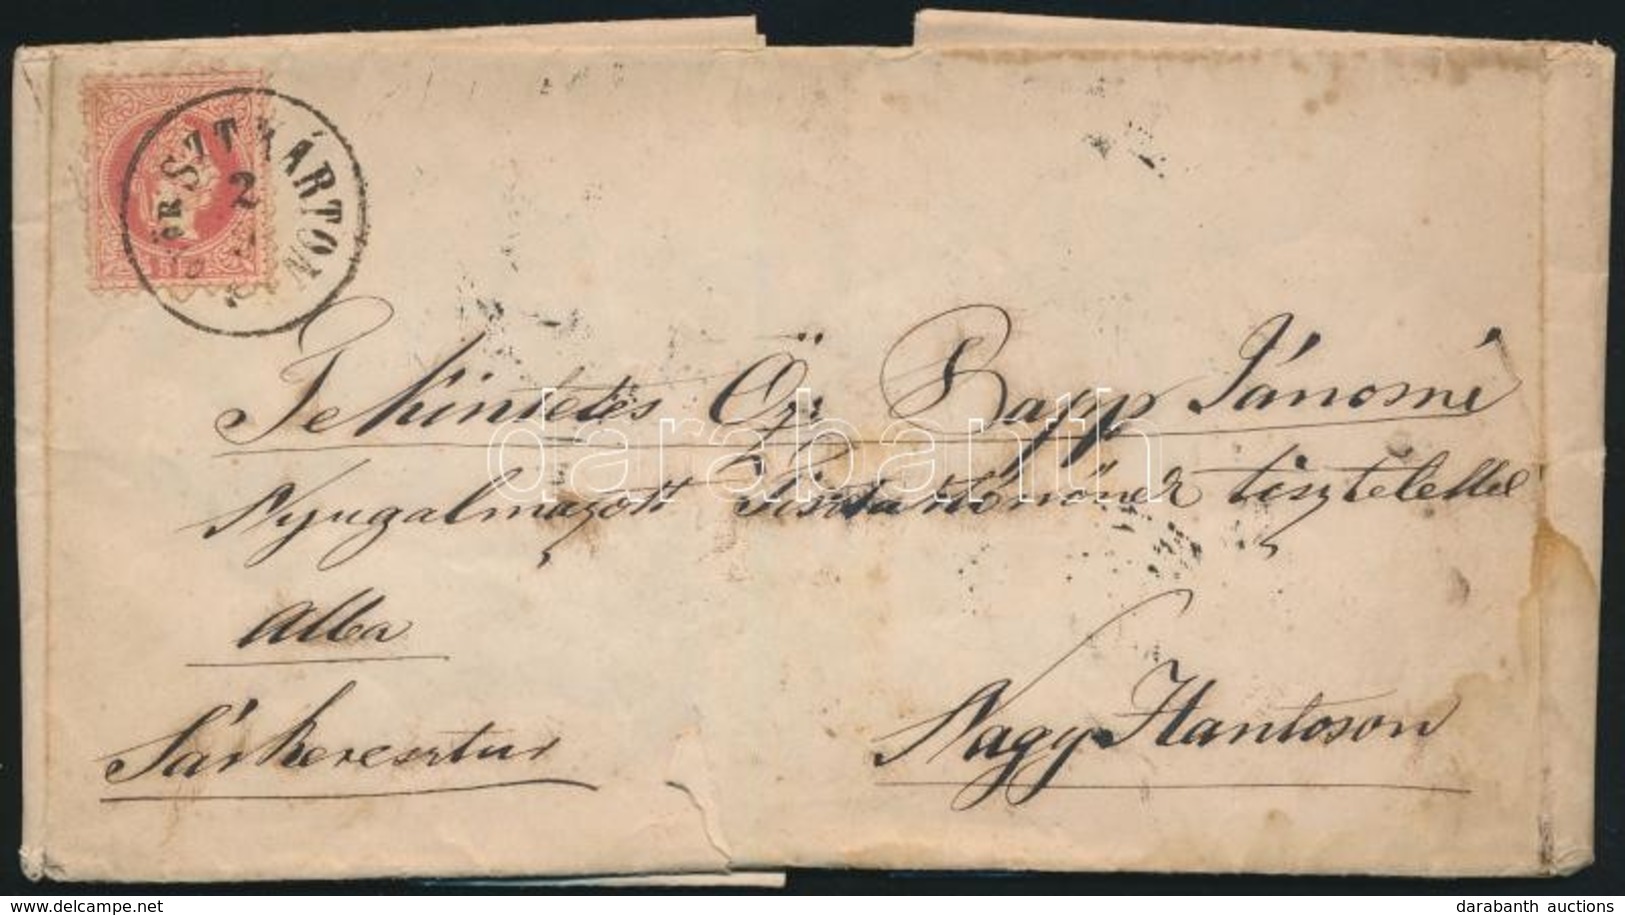 GYŐR SZT MÁRTON
2
Tekintetes Őzv Rapp Jánosné
darabanth
Nyugalmazott tisztelettel
Alba
Sárkeresztur
Nagy Hantoson
www.delcampe.net
darabanth auctions